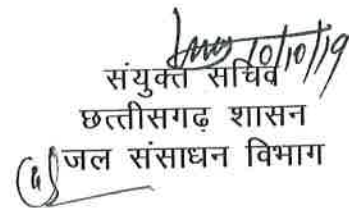 10/10/19
संयुक्त सचिव
छत्तीसगढ़ शासन
जल संसाधन विभाग